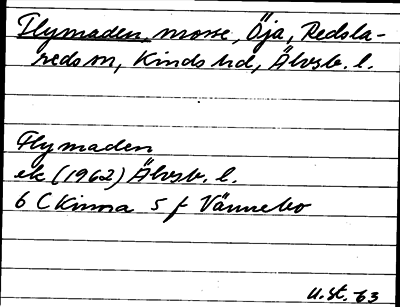 Flymaden mosse, Öja, Redsla-
reds sn, Kinds hd, Älvsb. l.
Flymaden
ek (1962) Älvsb. l.
6 C Kinna 5 f Vännebo
U. St. 63